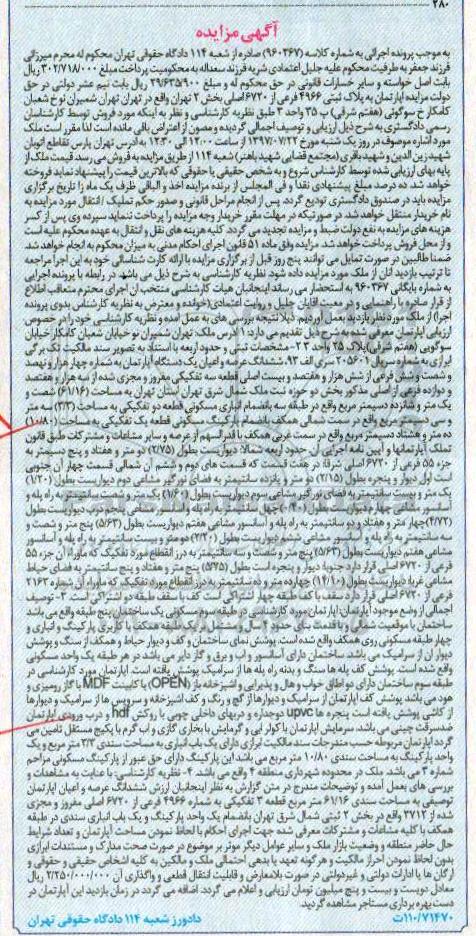 ۲۸۰
آگهی مزایده
به موجب پرونده اجرائی به شماره کلاسه (۹۶۰۳۶۷) صادره از شعبه ۱۱۴ دادگاه حقوقی تهران محکوم له محرم میرزائی
فرزند جعفر به طرفیت محکوم علیه جلیل اعتمادی شربه فرزند سعداله به محکومیت پرداخت مبلغ ۳۰۲/۷۱۸/۰۰۰ ریال
بابت اصل خواسته و سایر خسارات قانونی در حق محکوم له و مبلغ ۲۹/۶۳۵/۹۰۰ ریال بابت نیم عشر دولتی در حق
دولت مزایده آپارتمان به پلاک ثبتی ۴۹۶۶ فرعی از ۶۷۲۰ اصلی بخش ۲ تهران واقع در تهران تهران شمیران نوخ شعبان
کامکار خ سوگوئی (هفتم شرقی) پ ۳۵ واحد ۳ طبق نظریه کارشناسی و نظر به اینکه مورد فروش توسط کارشناسان
رسمی دادگستری به شرح ذیل ارزیابی و توصیف اجمالی گردیده و مصون از اعتراض باقی مانده است لذا مقرر است ملک
مورد اشاره موصوف در روز یک شنبه مورخ ۱۳۹۷/۰۷/۲۲ از ساعت ۱۲:۰۰ الی ۱۲:۳۰ به آدرس تهران پارس تقاطع اتوبان
شهید زین الدین و شهید باقری (مجتمع قضایی شهید باهنر) شعبه ۱۱۴ از طریق مزایده به فروش می رسد قیمت ملک از
پایه بهای ارزیابی شده توسط کارشناس شروع و به شخص حقیقی یا حقوقی که بالاترین قیمت را پیشنهاد نماید فروخته
خواهد شد. ده درصد مبلغ پیشنهادی نقدا و فی المجلس از برنده مزایده اخذ و الباقی ظرف یک ماه از تاریخ برگزاری
مزایده باید در صندوق دادگستری تودیع گردد. پس از انجام مراحل قانونی و صدور حکم تملیک / انتقال مورد مزایده به
نام خریدار منتقل خواهد شد. در صورتیکه در مهلت مقرر خریدار وجه مزایده را پرداخت ننماید سپرده وی پس از کسر
هزینه های مزایده به نفع دولت ضبط و مزایده تجدید می گردد. کلیه هزینه های نقل و انتقال به عهده محکوم علیه است
و از محل فروش پرداخت خواهد شد. مزایده وفق ماده ۵۱ قانون اجرای احکام مدنی به میزان محکوم به انجام خواهد شد.
ضمنا طالبین در صورت تمایل می توانند پنج روز قبل از برگزاری مزایده با ارائه کارت شناسائی خود به این اجرا مراجعه
تا ترتیب بازدید آنان از ملک مورد مزایده داده شود. نظریه کارشناسی به شرح ذیل می باشد. در رابطه با پرونده اجرایی
به شماره بایگانی ۹۶۰۳۶۷ به استحضار می رساند اینجانبان هیات کارشناسی منتخب آن اجرای محترم متعاقب اطلاع
از قرار صادره با راهنمایی و در معیت آقایان جلیل و روایت اعتمادی (خوانده و معترض به نظریه کارشناس بدوی پرونده
اجرا) از ملک مورد نظر بازدید بعمل آوردیم. ذیلا نتیجه بررسی های به عمل آمده و نظریه کارشناسی خود را در خصوص
ارزیابی آپارتمان معرفی شده به شرح ذیل تقدیم می دارد: ۱- آدرس ملک: تهران شمیران نو خیابان شعبان کامکار خیابان
سوگویی (هفتم شرقی) پلاک ۳۵ واحد ۳ ۲- مشخصات ثبتی و حدود اربعه با استناد به تصویر سند مالکیت تک برگی
ابرازی به شماره سریال ۲۰۵۶۰۱ سری الف ۹۳، ششدانگ عرصه و اعیان یک دستگاه آپارتمان به شماره چهار هزار و نهصد
و شصت و شش فرعی از شش هزار و هفتصد و بیست اصلی قطعه سه تفکیکی مفروز و مجزی شده از سه هزار و هفتصد
و دوازده فرعی از اصلی مذکور بخش دو حوزه ثبت ملک شمال شرق تهران استان تهران به مساحت (۶۱/۱۶) شصت و
یک متر و شانزده دسیمتر مربع واقع در طبقه سه بانضمام انباری مسکونی قطعه دو تفکیکی به مساحت (۳/۳) سه متر
و سی دسیمتر مربع واقع در سمت شمالی همکف بانضمام پارکینگ مسکونی قطعه یک تفکیکی به مساحت (۱۰/۸۰)
ده متر و هشتاد دسیمتر مربع واقع در سمت غربی همکف با قدرالسهم از عرصه و سایر مشاعات و مشترکات طبق قانون
تملک آپارتمانها و آیین نامه اجرایی آن حدود اربعه شمالا: دیواریست بطول (۲/۷۵) دو متر و هفتاد و پنج دسیمتر به
جزء ۵۵ فرعی از ۶۷۲۰ اصلی شرقا: در هفت قسمت که قسمت های دوم و ششم آن شمالی قسمت چهار آن جنوبی
است اول دیوار و پنجره بطول (۲/۱۵) دو متر و پانزده سانتیمتر به فضای نورگیر مشاعی دوم دیواریست بطول (۱/۲۰)
یک متر و بیست سانتیمتر به فضای نورگیر مشاعی سوم دیواریست بطول (۱/۶۰) یک متر و شصت سانتیمتر به راه پله و
آسانسور مشاعی چهارم دیواریست بطول (۰/۴۰) چهل سانتیمتر به راه پله و آسانسور مشاعی پنجم درب دیواریست بطول
(۴/۷۲) چهار متر و هفتاد و دو سانتیمتر به راه پله و آسانسور مشاعی هفتم دیواریست بطول (۵/۶۳) پنج متر و شصت و
سه سانتیمتر به راه پله و آسانسور مشاعی ششم دیواریست بطول (۲/۲۰) دو متر و بیست سانتیمتر به راه پله و آسانسور
مشاعی هفتم دیواریست بطول (۵/۶۳) پنج متر و شصت و سه سانتیمتر به درز انقطاع مورد تفکیک که ماوراء آن جزء ۵۵
فرعی از ۶۷۲۰ اصلی قرار دارد جنوبا: دیوار و پنجره است بطول (۵/۷۵) پنج متر و هفتاد و پنج سانتیمتر به فضای حیاط
مشاعی غربا: دیواریست بطول (۱۴/۱۰) چهارده متر و ده سانتیمتر به درز انقطاع مورد تفکیک، که ماوراء آن شماره ۲۱۶۲
فرعی از ۶۷۲۰ اصلی قرار دارد سقف با کف طبقه چهار اشتراکی است کف با سقف طبقه دو اشتراکی است. ۳- توصیف
اجمالی از وضع موجود آپارتمان: آپارتمان مورد کارشناسی در طبقه سوم مسکونی یک ساختمان پنج طبقه واقع می باشد
چهار طبقه مسکونی روی همکف واقع شده است. پوشش نمای ساختمان و کف و دیوار حیاط و همکف از سنگ و پوشش
دیوار آن از سرامیک می باشد. ساختمان دارای آسانسور و آب و برق و گاز دایر می باشد در هر طبقه یک واحد مسکونی
واقع شده است. پوشش کف پله ها سنگ و بدنه راه پله ها از سرامیک پوشش یافته است. آپارتمان مورد کارشناسی در
طبقه سوم ساختمان دارای دو اطاق خواب و هال و پذیرایی و آشپزخانه باز (OPEN) با کابینت MDF با گاز رومیزی و
هود می باشد. پوشش کف آپارتمان از سرامیک و دیوارها از گچ و رنگ و کف آشپزخانه و سرویس ها از سرامیک و دیوارها
از کاشی پوشش یافته است پنجره ها upvc دوجداره و دربهای داخلی چوبی با روکش hdf و درب ورودی آپارتمان
ضدسرقت چینی می باشد. سرمایش آپارتمان با کولر آبی و گرمایش با بخاری گازی و آب گرم با پکیج مستقل تامین می
گردد آپارتمان مربوطه حسب مندرجات سند مالکیت ابرازی دارای یک باب انباری به مساحت سندی ۳/۳ متر مربع و یک
واحد پارکینگ به مساحت سندی ۱۰/۸۰ متر مربع می باشد این پارکینگ دارای حق عبور از پارکینگ مسکونی مزاحم
شماره ۳ می باشد. ملک در محدوده شهرداری منطقه ۴ واقع می باشد. ۴- نظریه کارشناسی: با عنایت به مشاهدات و
بررسی های بعمل آمده و توضیحات مندرج در متن گزارش به نظر اینجانبان ارزش ششدانگ عرصه و اعیان آپارتمان
توصیفی به مساحت سندی ۶۱/۱۶ متر مربع قطعه ۳ تفکیکی به شماره ۴۹۶۶ فرعی از ۶۷۲۰ اصلی مفروز و مجزی
شده از ۳۷۱۲ واقع در بخش ۲ ثبتی شمال شرق تهران بانضمام یک واحد پارکینگ و یک باب انباری سندی در طبقه
همکف با کلیه مشاعات و مشترکات معرفی شده جهت اجرای احکام با لحاظ نمودن مساحت آپارتمان و تعداد شرایط
حال حاضر منطقه و وضعیت بازار ملک و سایر عوامل دیگر موثر بر موضوع در صورت صحت مدارک و مستندات ابرازی
بدون لحاظ نمودن احراز مالکیت و هرگونه تعهد یا بدهی احتمالی ملک و مالکین به کلیه اشخاص حقیقی و حقوقی و
ارگان ها یا ادارات دولتی و غیردولتی در صورت بلامعارض و قابلیت انتقال قطعی و واگذاری آن ۲/۲۵۰/۰۰۰/۰۰۰ ریال
معادل دویست و بیست و پنج میلیون تومان ارزیابی و اعلام می گردد. اضافه می گردد در زمان بازدید این آپارتمان در
دست بهره برداری مستاجر مشاهده گردید.
۱۱۰/۷۱۴۷۰ت
دادورز شعبه ۱۱۴ دادگاه حقوقی تهران